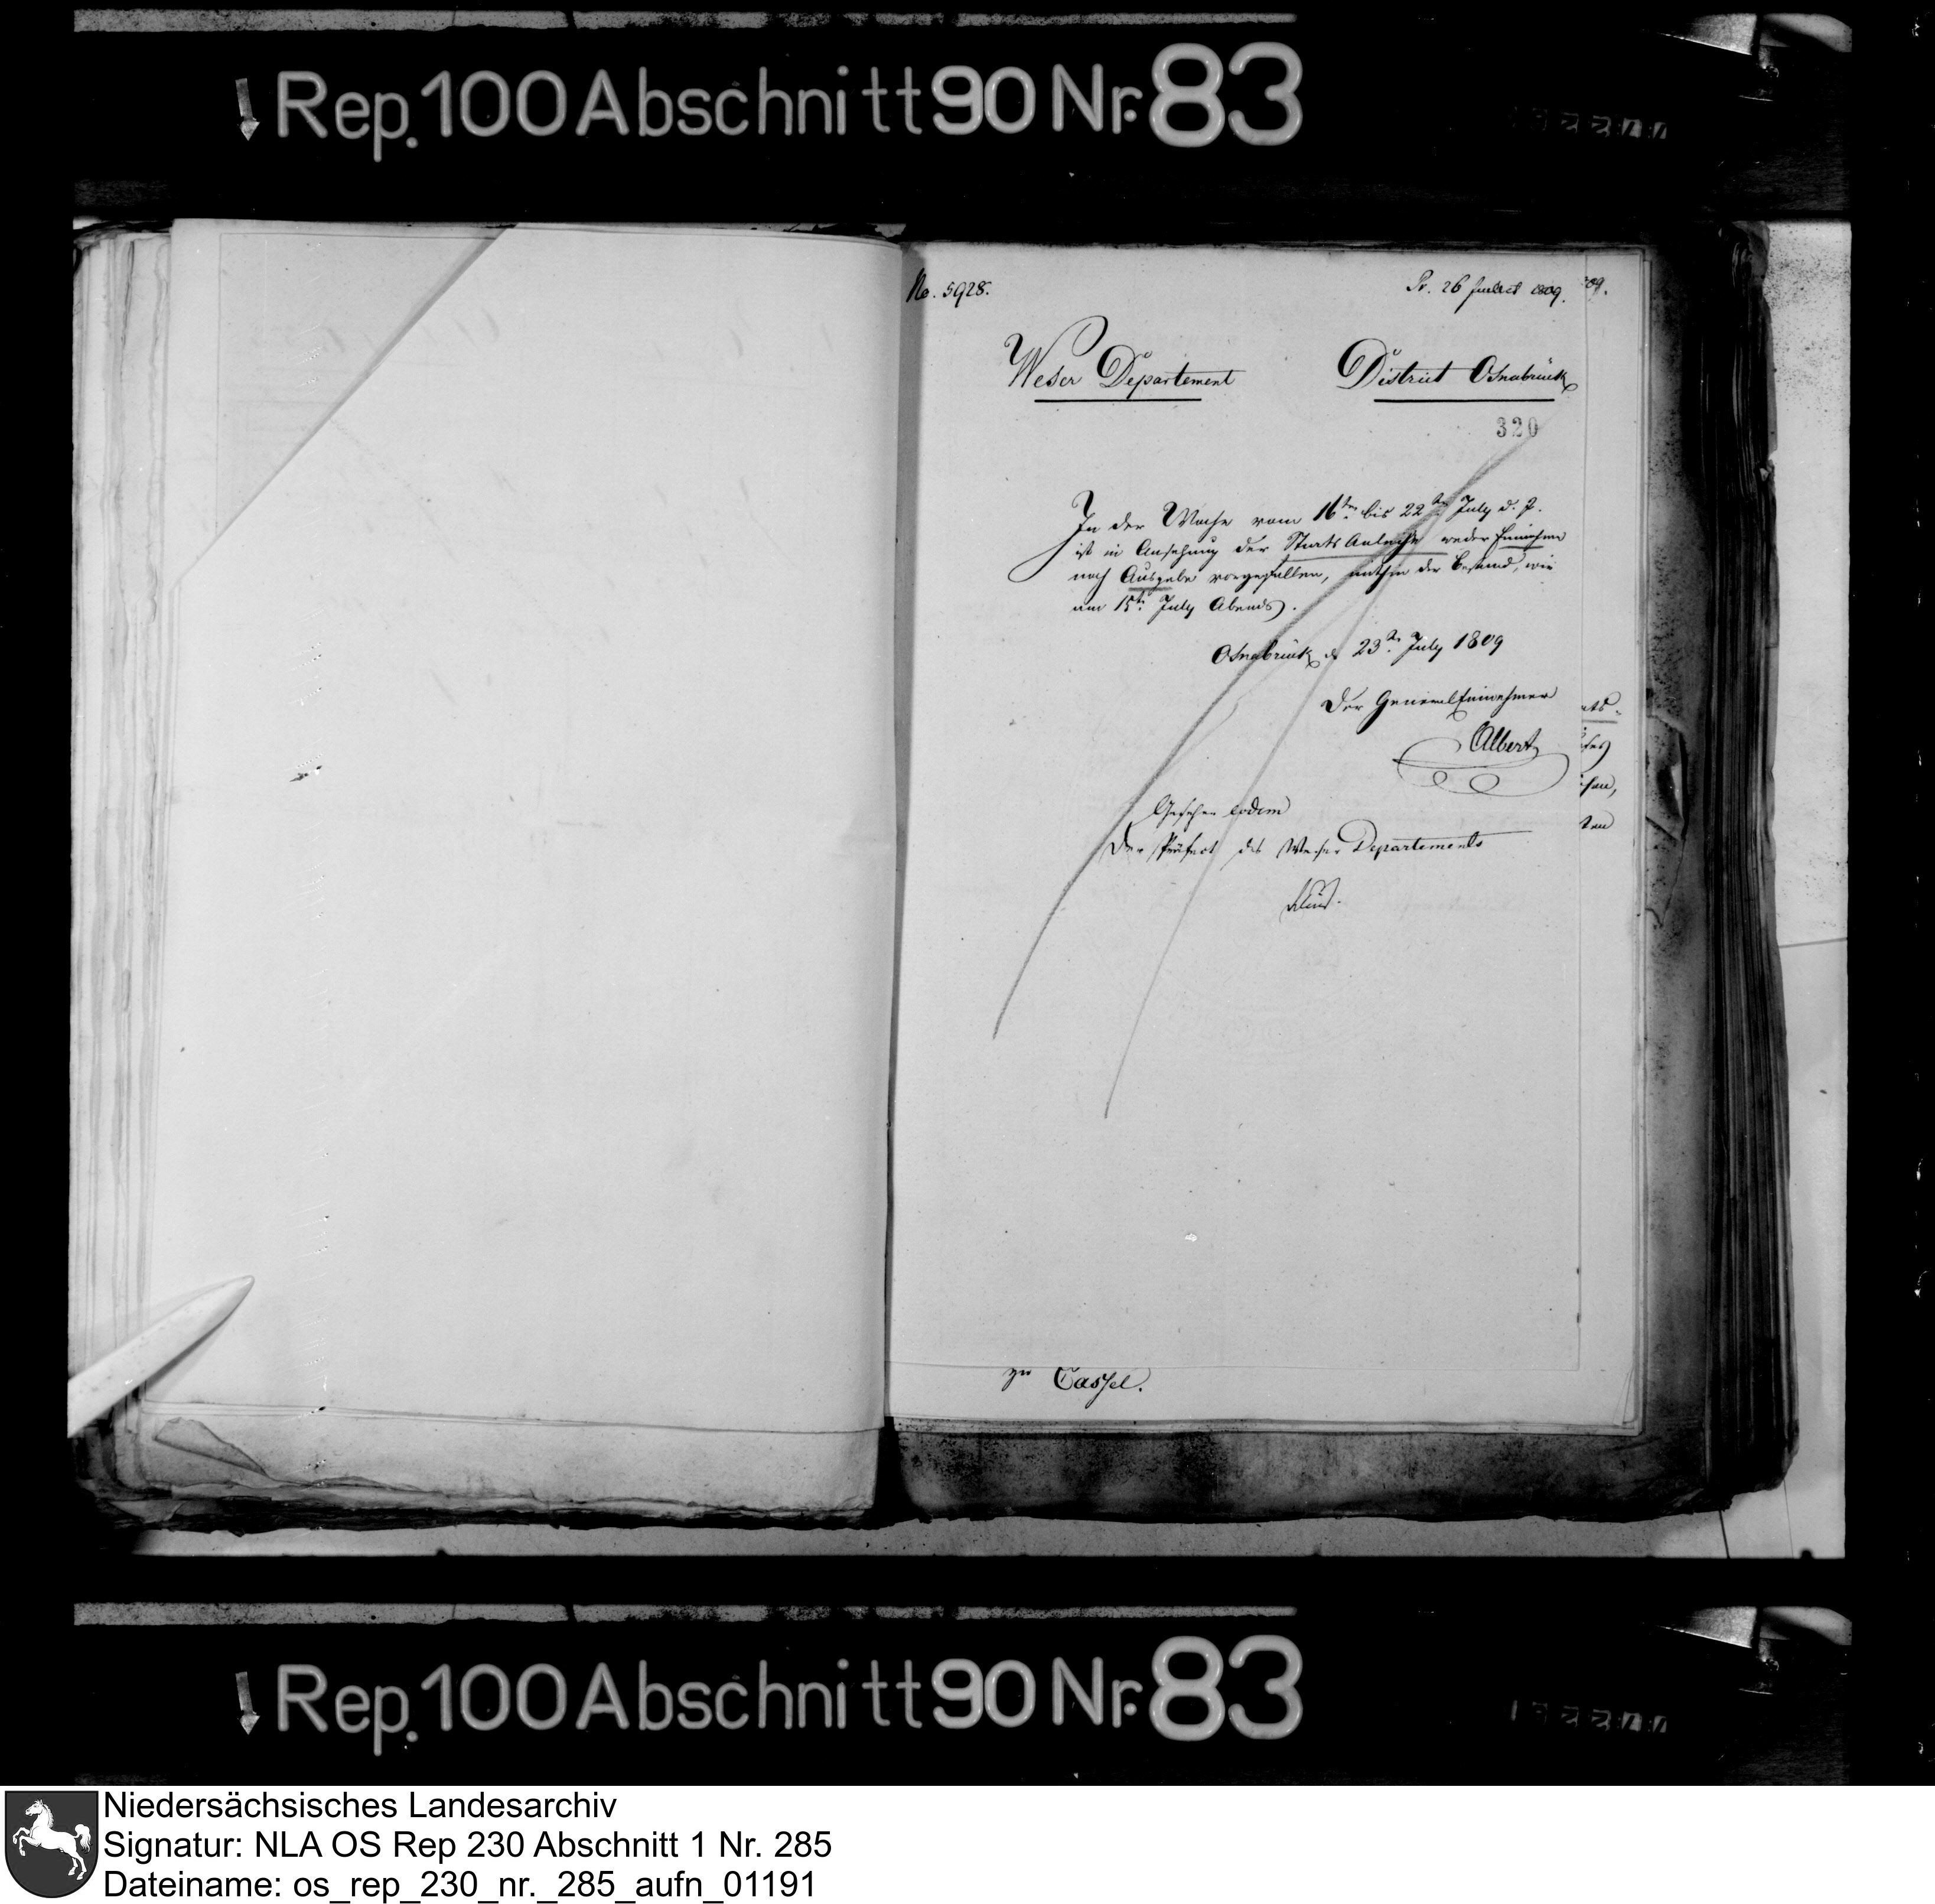 Rep. 100 Abschnitt 90 Nr. 83
No. 5928.
Pr. 26 Juillet 1809.
09.
Weser Departement
District Osnabrück
320
In der Woche vom 16ten bis 22ten July d. J.
ist in Ansehung der Staats Anleihe weder Einnahme
noch Ausgabe vorgefallen, mithin der Bestand, wie
am 15ten July Abends.
Osnabrück d 23ten July 1809
Der General Einnehmer
Albert
Gesehen eodem
Der Präfect des Weser Departements
zu Cassel.
Rep. 100 Abschnitt 90 Nr. 83
Niedersächsisches Landesarchiv
Signatur: NLA OS Rep 230 Abschnitt 1 Nr. 285
Dateiname: os_rep_230_nr._285_aufn_01191